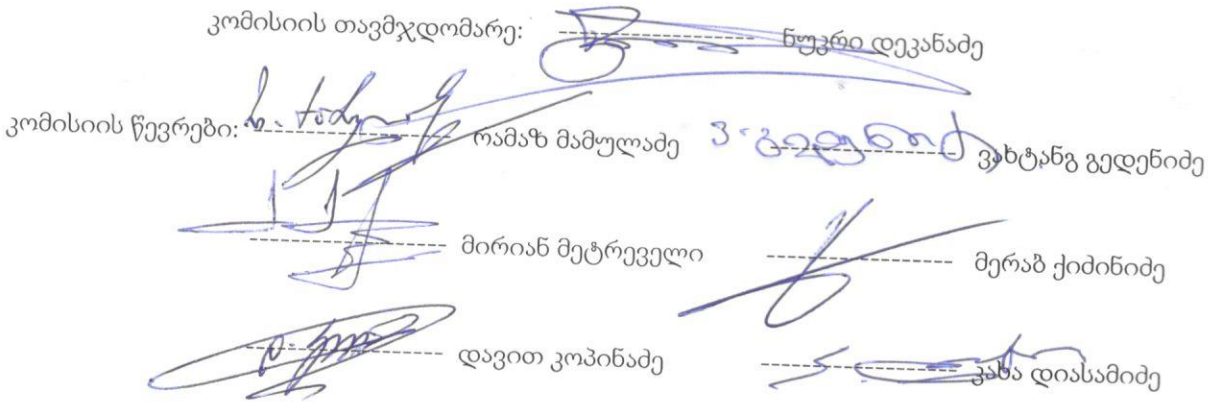 კომისიის თავმჯდომარე: ნუკრი დეკანაძე
კომისიის წევრები: რამაზ მამულაძე ვ. გედენიძ ვახტანგ გედენიძე
მირიან მეტრეველი მერაბ ქიძინიძე
დავით კოპინაძე კახა დიასამიძე